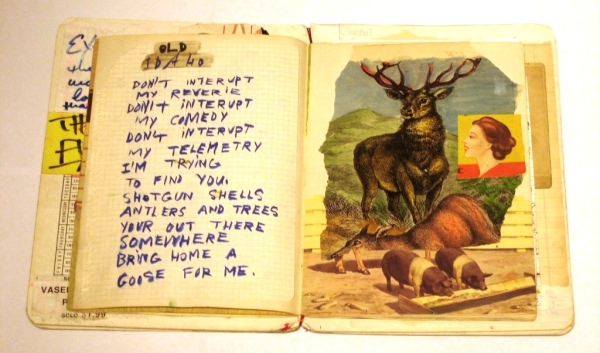 OLD
IDAHO
DON'T INTERUPT
MY REVERIE
DON'T INTERUPT
MY COMEDY
DON'T INTERUPT
MY TELEMETRY
I'M TRYING
TO FIND YOU.
SHOTGUN SHELLS
ANTLERS AND TREES
YOUR OUT THERE
SOMEWHERE
BRING HOME A
GOOSE FOR ME.
EX
VASE
SOLO $1.99